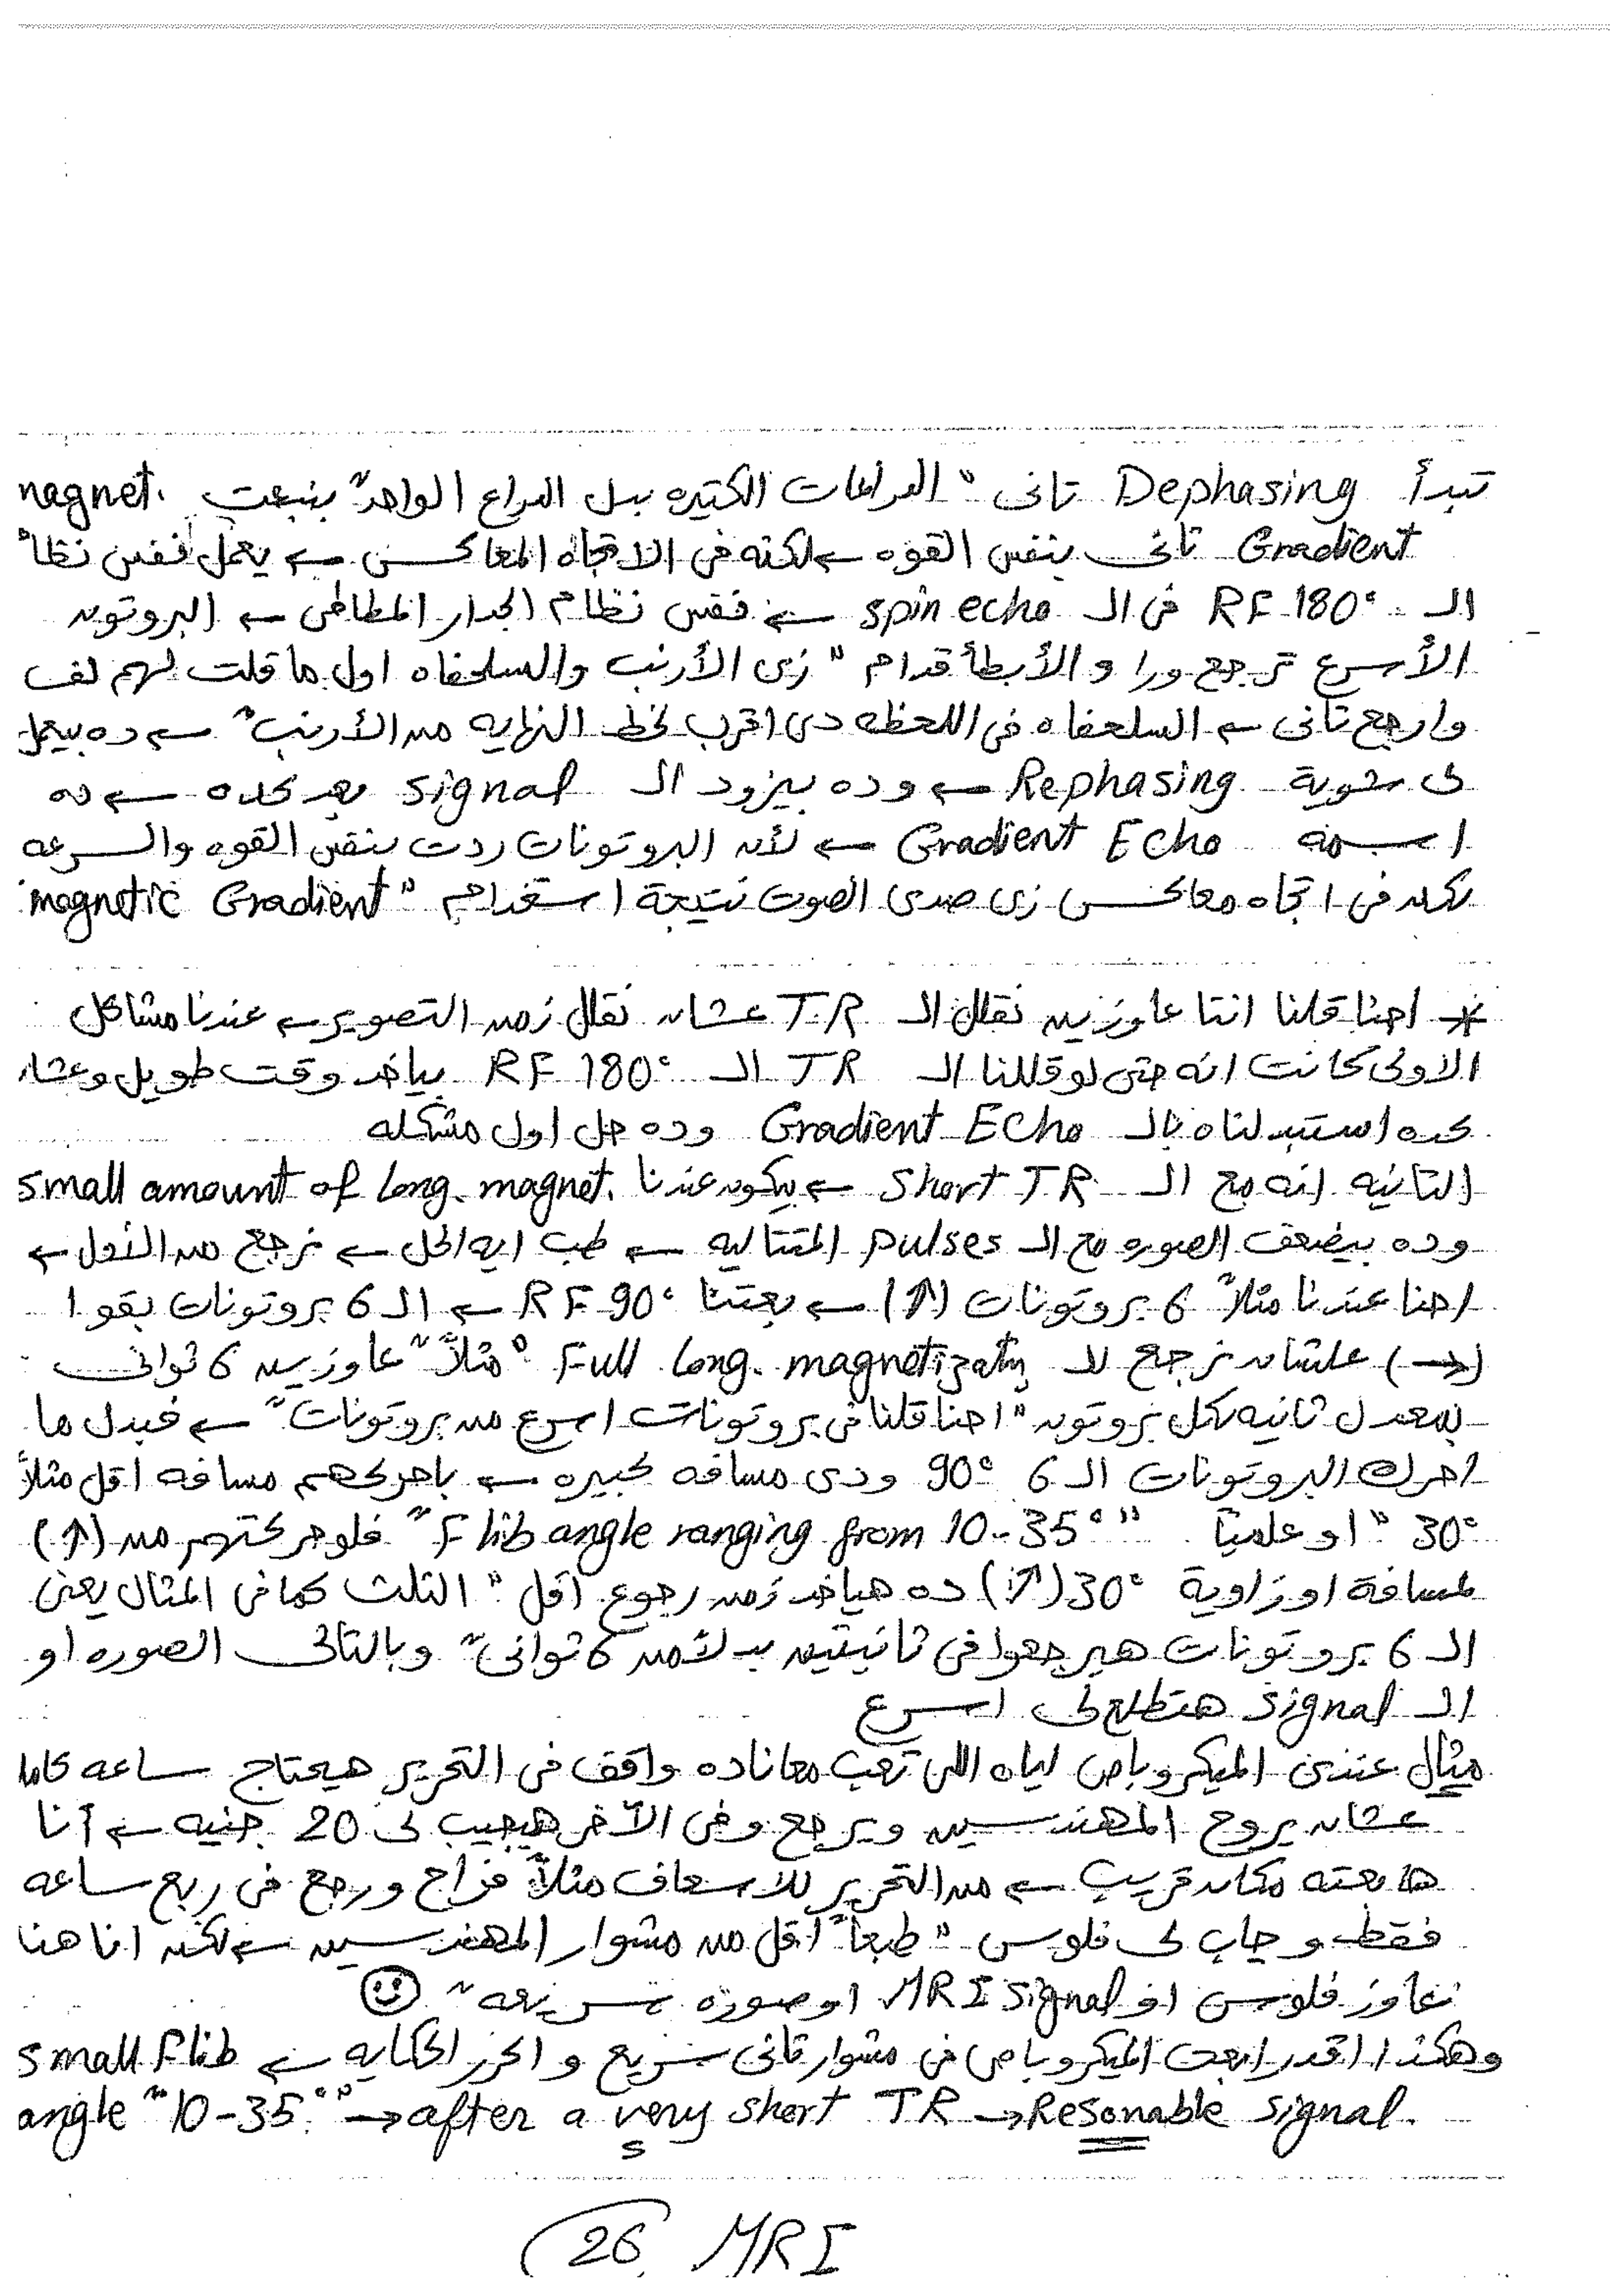 تبدأ Dephasing تانى "الدراعات الكتيره بدل الدراع الواحد" بنبعت magnet.
Gradient تانى بنفس القوه ← لكنه فى الاتجاه المعاكس ← يعمل نفس نظام
الـ RF 180° فى الـ spin echo ← نفس نظام الجدار المطاطى ← البروتون
الأسرع ترجع ورا و الأبطأ قدام "زى الأرنب والسلحفاه اول ما قلت لهم لف
وارجع تانى ← السلحفاه فى اللحظه دى اقرب لخط النهايه من الأرنب" ← ده بيعمل
لى شوية Rephasing ← وده بيزود الـ signal بعد كده ← ده
اسمه Gradient Echo ← لأن البروتونات ردت بنفس القوه والسرعه
لكن فى اتجاه معاكس زى صدى الصوت نتيجة استخدام "magnetic Gradient
* احنا قلنا اننا عاوزين نقلل الـ TR عشان نقلل زمن التصوير ← عندنا مشاكل
الاولى كانت انه حتى لو قللنا الـ TR الـ RF 180° بياخد وقت طويل وعشان
كده استبدلناه بالـ Gradient Echo وده حل اول مشكله
التانيه انه مع الـ Short TR ← بيكون عندنا small amount of long. magnet.
وده بيضعف الصوره مع الـ pulses المتتاليه ← طب ايه الحل ← نرجع من الأول ←
احنا عندنا مثلاً 6 بروتونات (↑) ← بعتنا RF 90° ← الـ 6 بروتونات بقوا
(→) علشان نرجع للـ Full long. magnetizatn "مثلاً" عاوزين 6 ثوانى
بمعدل ثانيه لكل بروتون "احنا قلنا فى بروتونات اسرع من بروتونات" ← فبدل ما
احرك البروتونات الـ 6 90° ودى مسافه كبيره ← باحركهم مسافه اقل مثلاً
30° "او علمياً "Flib angle ranging from 10-35°" فلو حركتهم من (↑)
لمسافة او زاوية 30° (↗) ده هياخد زمن رجوع أقل "التلت كما فى المثال يعنى
الـ 6 بروتونات هيرجعوا فى ثانيتين بدلاً من 6 ثوانى" وبالتالى الصوره او
الـ signal هتطلع لى اسرع
مثال عندى الميكروباص اياه اللى تعب معانا ده واقف فى التحرير هيحتاج ساعه كامله
عشان يروح المهندسين ويرجع وفى الآخر هيجيب لى 20 جنيه ← أنا
هابعته مكان قريب ← من التحرير للاسعاف مثلاً فراح ورجع فى ربع ساعه
فقط و جاب لى فلوس "طبعاً" أقل من مشوار المهندسين ← لكن انا هنا
عاوز فلوس او MRI signal او صوره سريعه"
وهكذا اقدر ابعت الميكروباص فى مشوار تانى سريع و اكرر الحكايه ← small Flib
angle "10-35°" → after a very short TR → Resonable signal.
s
26 MRI